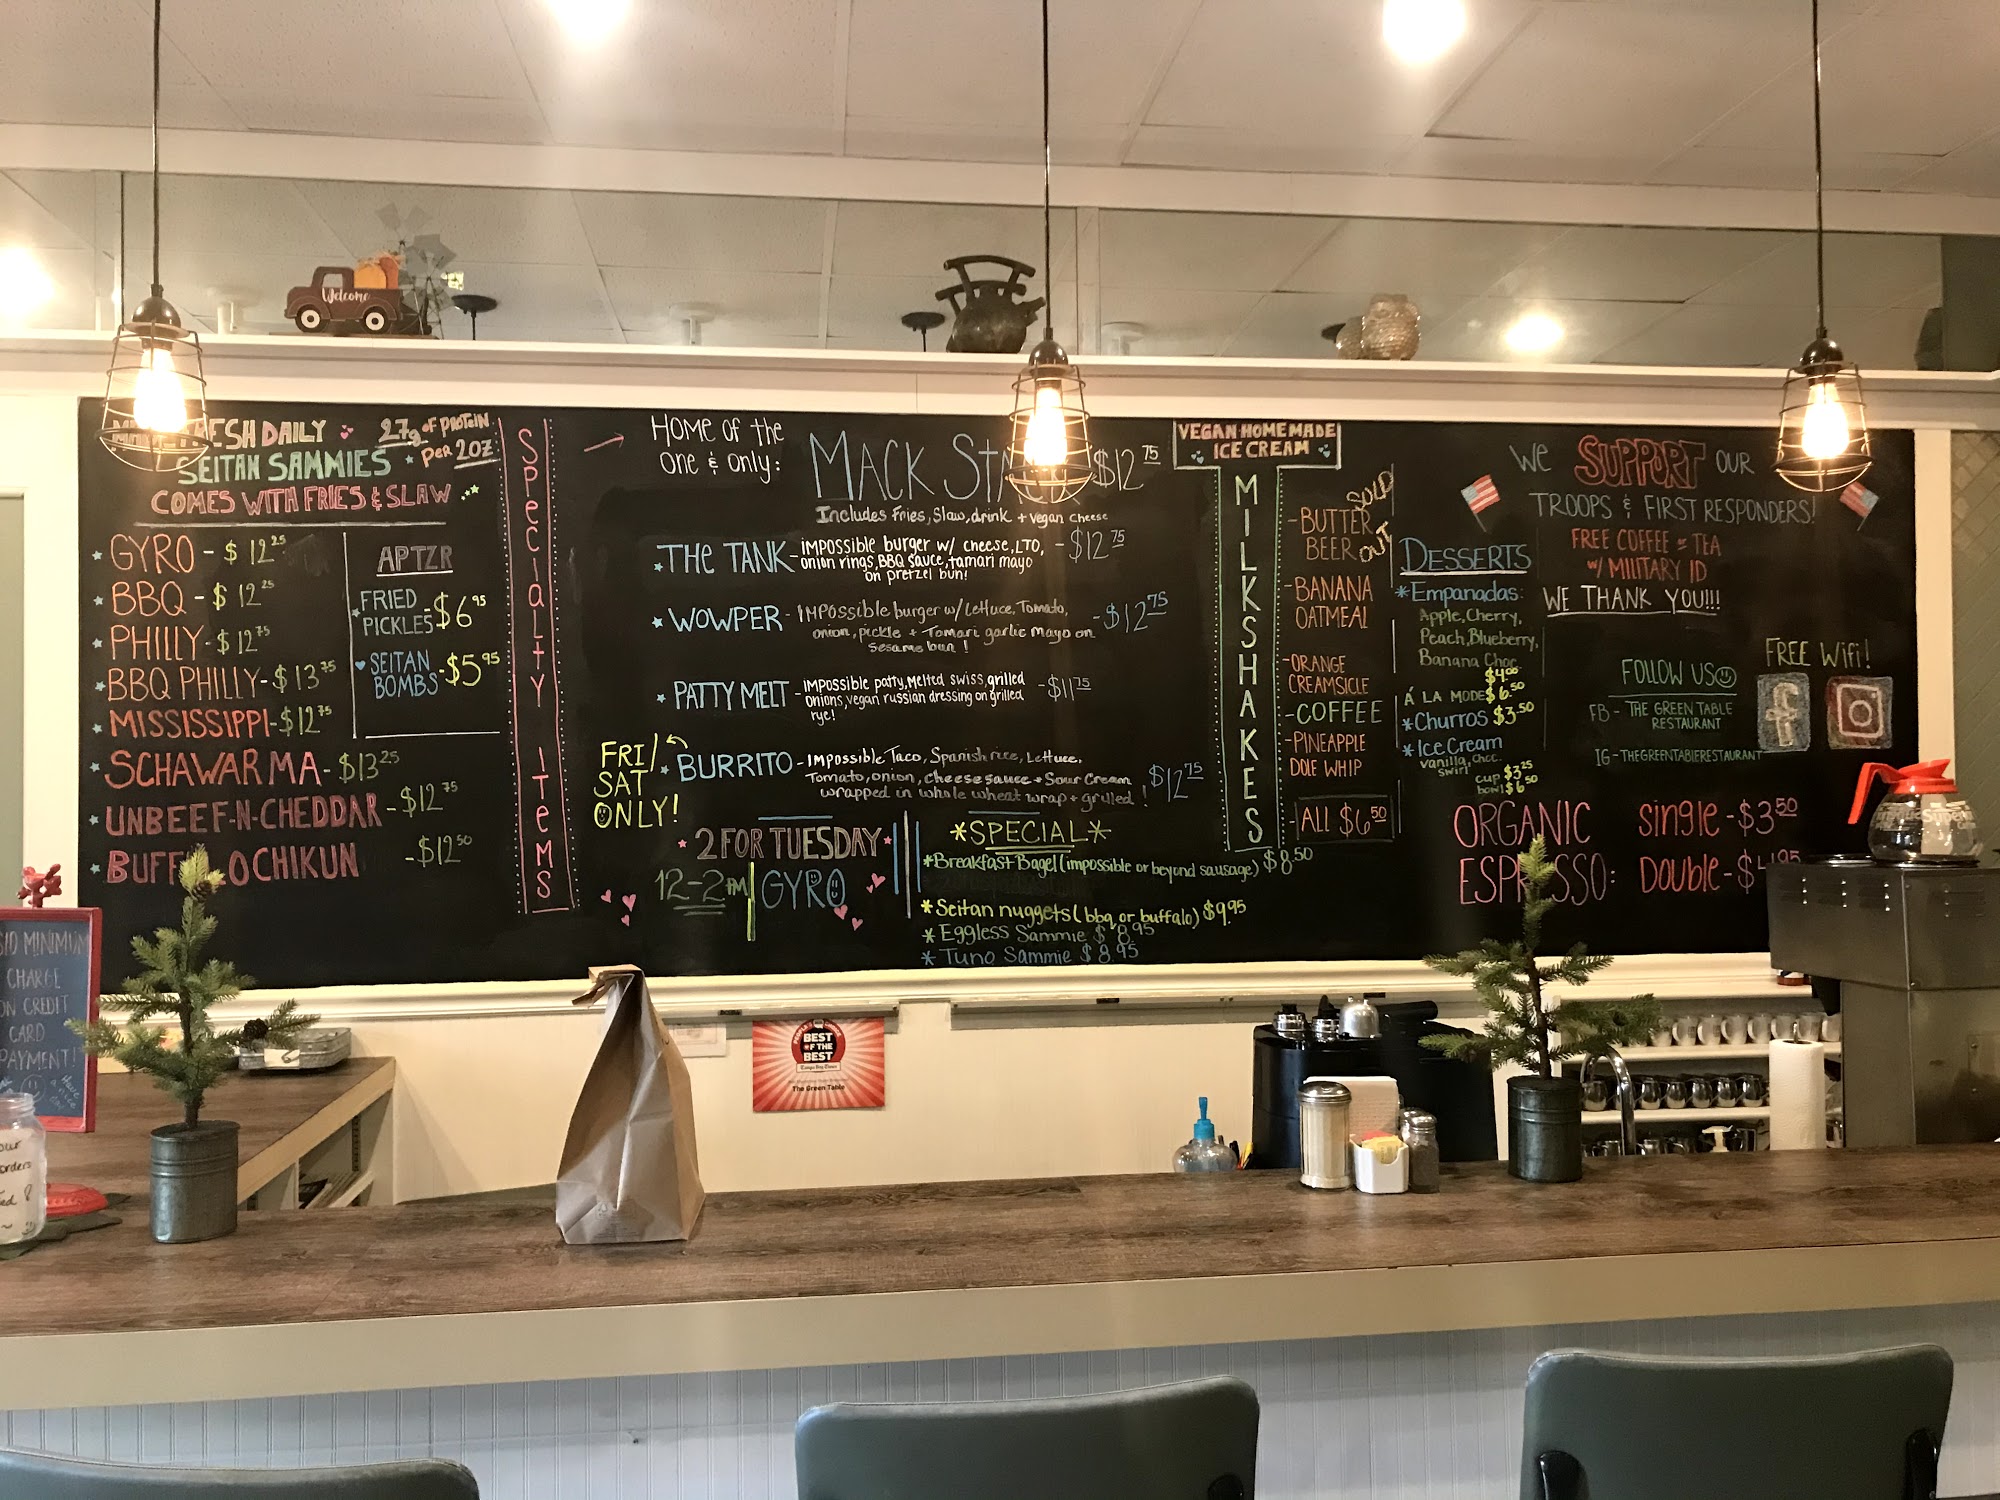 Welcome
FRESH DAILY
27g OF PROTEIN
PER 2OZ
SEITAN SAMMIES
COMES WITH FRIES & SLAW
* GYRO - $12.25
* BBQ - $12.25
* PHILLY - $12.75
* BBQ PHILLY - $13.75
* MISSISSIPPI - $12.75
* SCHAWARMA - $13.25
* UNBEEF-N-CHEDDAR - $12.75
* BUFF LO CHIKUN - $12.50
APTZR
FRIED
PICKLES - $6.95
SEITAN
BOMBS - $5.95
SPeciaLTY ITeMS
HOME OF THE
ONE & ONLY:
MACK $12.75
Includes Fries, Slaw, drink + vegan cheese
* THE TANK - IMPOSSIBLE burger w/ cheese, LTO, - $12.75
onion rings, BBQ sauce, tamari mayo
on pretzel bun!
* WOWPER - IMPOSSIBLE burger w/ Lettuce, Tomato, - $12.75
onion, pickle + Tamari garlic mayo on
sesame bun!
* PATTY MELT - IMPOSSIBLE patty, Melted swiss, grilled - $11.75
onions, vegan russian dressing on grilled
rye!
FRI/
SAT
ONLY!
* BURRITO - IMPOSSIBLE Taco, Spanish rice, Lettuce,
Tomato, onion, cheese sauce + Sour Cream
wrapped in whole wheat wrap + grilled! $12.75
* 2 FOR TUESDAY *
12-2PM GYRO
*SPECIAL*
*Breakfast Bagel (impossible or beyond sausage) $8.50
*Seitan nuggets (bbq or buffalo) $9.95
*Eggless Sammie $8.95
*Tuno Sammie $8.95
VEGAN HOMEMADE
ICE CREAM
MILKSHAKES
- BUTTER
BEER
SOLD
OUT
- BANANA
OATMEAL
- ORANGE
CREAMSICLE
- COFFEE
- PINEAPPLE
DOLE WHIP
- ALL $6.50
DESSERTS
*Empanadas:
Apple, Cherry,
Peach, Blueberry,
Banana Choc
$4.00
Á LA MODE $6.50
*Churros $3.50
*Ice Cream
vanilla, choc.
swirl
cup $3.25
bowl $6.50
We SUPPORT OUR
TROOPS & FIRST RESPONDERS!
FREE COFFEE or TEA
w/ MILITARY ID
WE THANK YOU!!!
FOLLOW US
FB - THE GREEN TABLE
RESTAURANT
IG - THEGREENTABLERESTAURANT
FREE WiFi!
f
ORGANIC
ESPRESSO:
single - $3.50
Double - $4.95
$10 MINIMUM
CHARGE
ON CREDIT
CARD
PAYMENT!
Have
a nice
BEST
OF THE
BEST
Tampa Bay Times
The Green Table